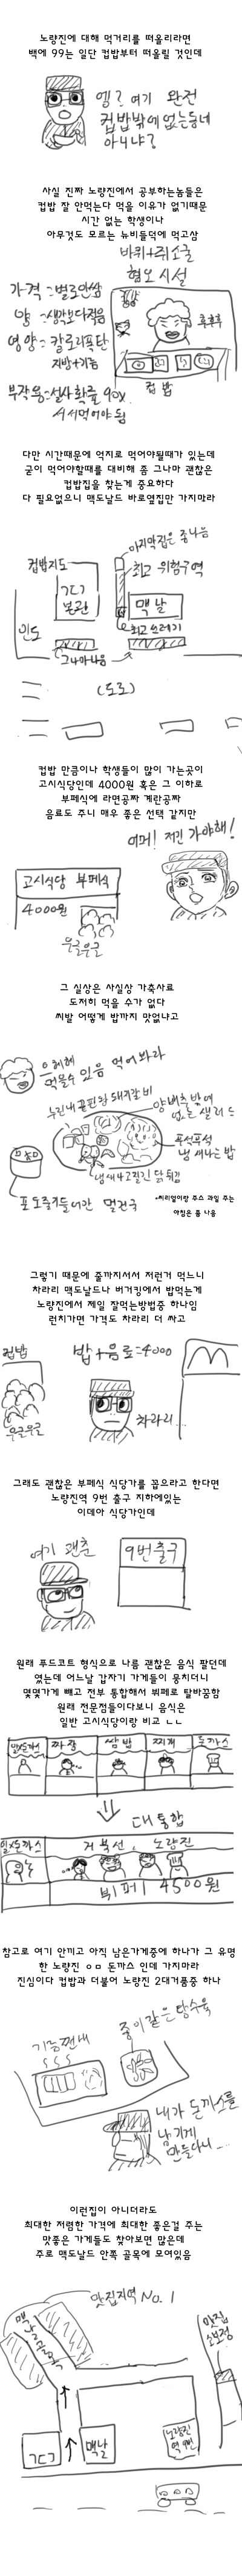 노량진에 대해 먹거리를 떠올리라면
백에 99는 일단 컵밥부터 떠올릴 것인데
엥? 여기 완전
컵밥밖에 없는 동네
아니냐?
사실 진짜 노량진에서 공부하는놈들은
컵밥 잘 안먹는다 먹을 이유가 없기때문
시간 없는 학생이나
아무것도 모르는 뉴비들덕에 먹고삼
바퀴+쥐소굴
혐오시설
가격 : 별로안쌈
양 : 생각보다적음
영양 : 칼로리폭탄
지방+기름
부작용 : 설사확률 90%
서서먹어야 됨
후후후
컵밥
다만 시간때문에 억지로 먹어야될때가 있는데
굳이 먹어야할때를 대비해 좀 그나마 괜찮은
컵밥집을 찾는게 중요하다
다 필요없으니 맥도날드 바로옆집만 가지마라
컵밥지도
마지막집은 좀 나음
ㄱㄷㄱ
본관
최고 위험구역
맥날
인도
최고쓰레기
그나마나음
(도로)
컵밥 만큼이나 학생들이 많이 가는곳이
고시식당인데 4000원 혹은 그 이하로
부페식에 라면공짜 계란공짜
음료도 주니 매우 좋은 선택 같지만
여퍼! 저긴 가야해!
고시식당 부페식
4000원
우글우글
그 실상은 사실상 가축사료
도저히 먹을 수가 없다
씨발 어떻게 밥까지 맛없냐고
으헤헤
먹을수 있음 먹어봐라
누린내 끝판왕 돼지갈비
양배추밖에
없는 샐러드
푸석푸석
냄새나는 밥
냄새나고 질긴 닭튀김
멀건국
+씨리얼이랑 주스 과일 주는
아침은 좀 나음
그렇기 때문에 줄까지서서 저런거 먹느니
차라리 맥도날드나 버거킹에서 밥먹는게
노량진에서 제일 잘먹는방법중 하나임
런치가면 가격도 차라리 더 싸고
컵밥
밥+음료=4000
우글우글
차라리...
그래도 괜찮은 부페식 식당가를 꼽으라고 한다면
노량진역 9번 출구 지하에있는
이데아 식당가인데
여기 괜춘
9번출구
원래 푸드코트 형식으로 나름 괜찮은 음식 팔던데
였는데 어느날 갑자기 가게들이 뭉치더니
몇몇가게 빼고 전부 통합해서 뷔페로 탈바꿈함
원래 전문점들이다보니 음식은
일반 고시식당이랑 비교 ㄴㄴ
짜장
쌈밥
찌개
돈까스
대통합
거북선, 노량진
뷔페 4500원
참고로 여기 안끼고 아직 남은가게중에 하나가 그 유명
한 노량진 ㅇㅁ 돈까스 인데 가지마라
진심이다 컵밥과 더불어 노량진 2대거품중 하나
종이같은 탕수육
기름쩐내
내가 돈까스를
남기게
만들다니...
이런집이 아니더라도
최대한 저렴한 가격에 최대한 좋은걸 주는
맛좋은 가게들도 찾아보면 많은데
주로 맥도날드 안쪽 골목에 모여있음
맛집지역 No.1
맥날골목
맛집
ㄱㄷㄱ
맥날
노량진
역 9번